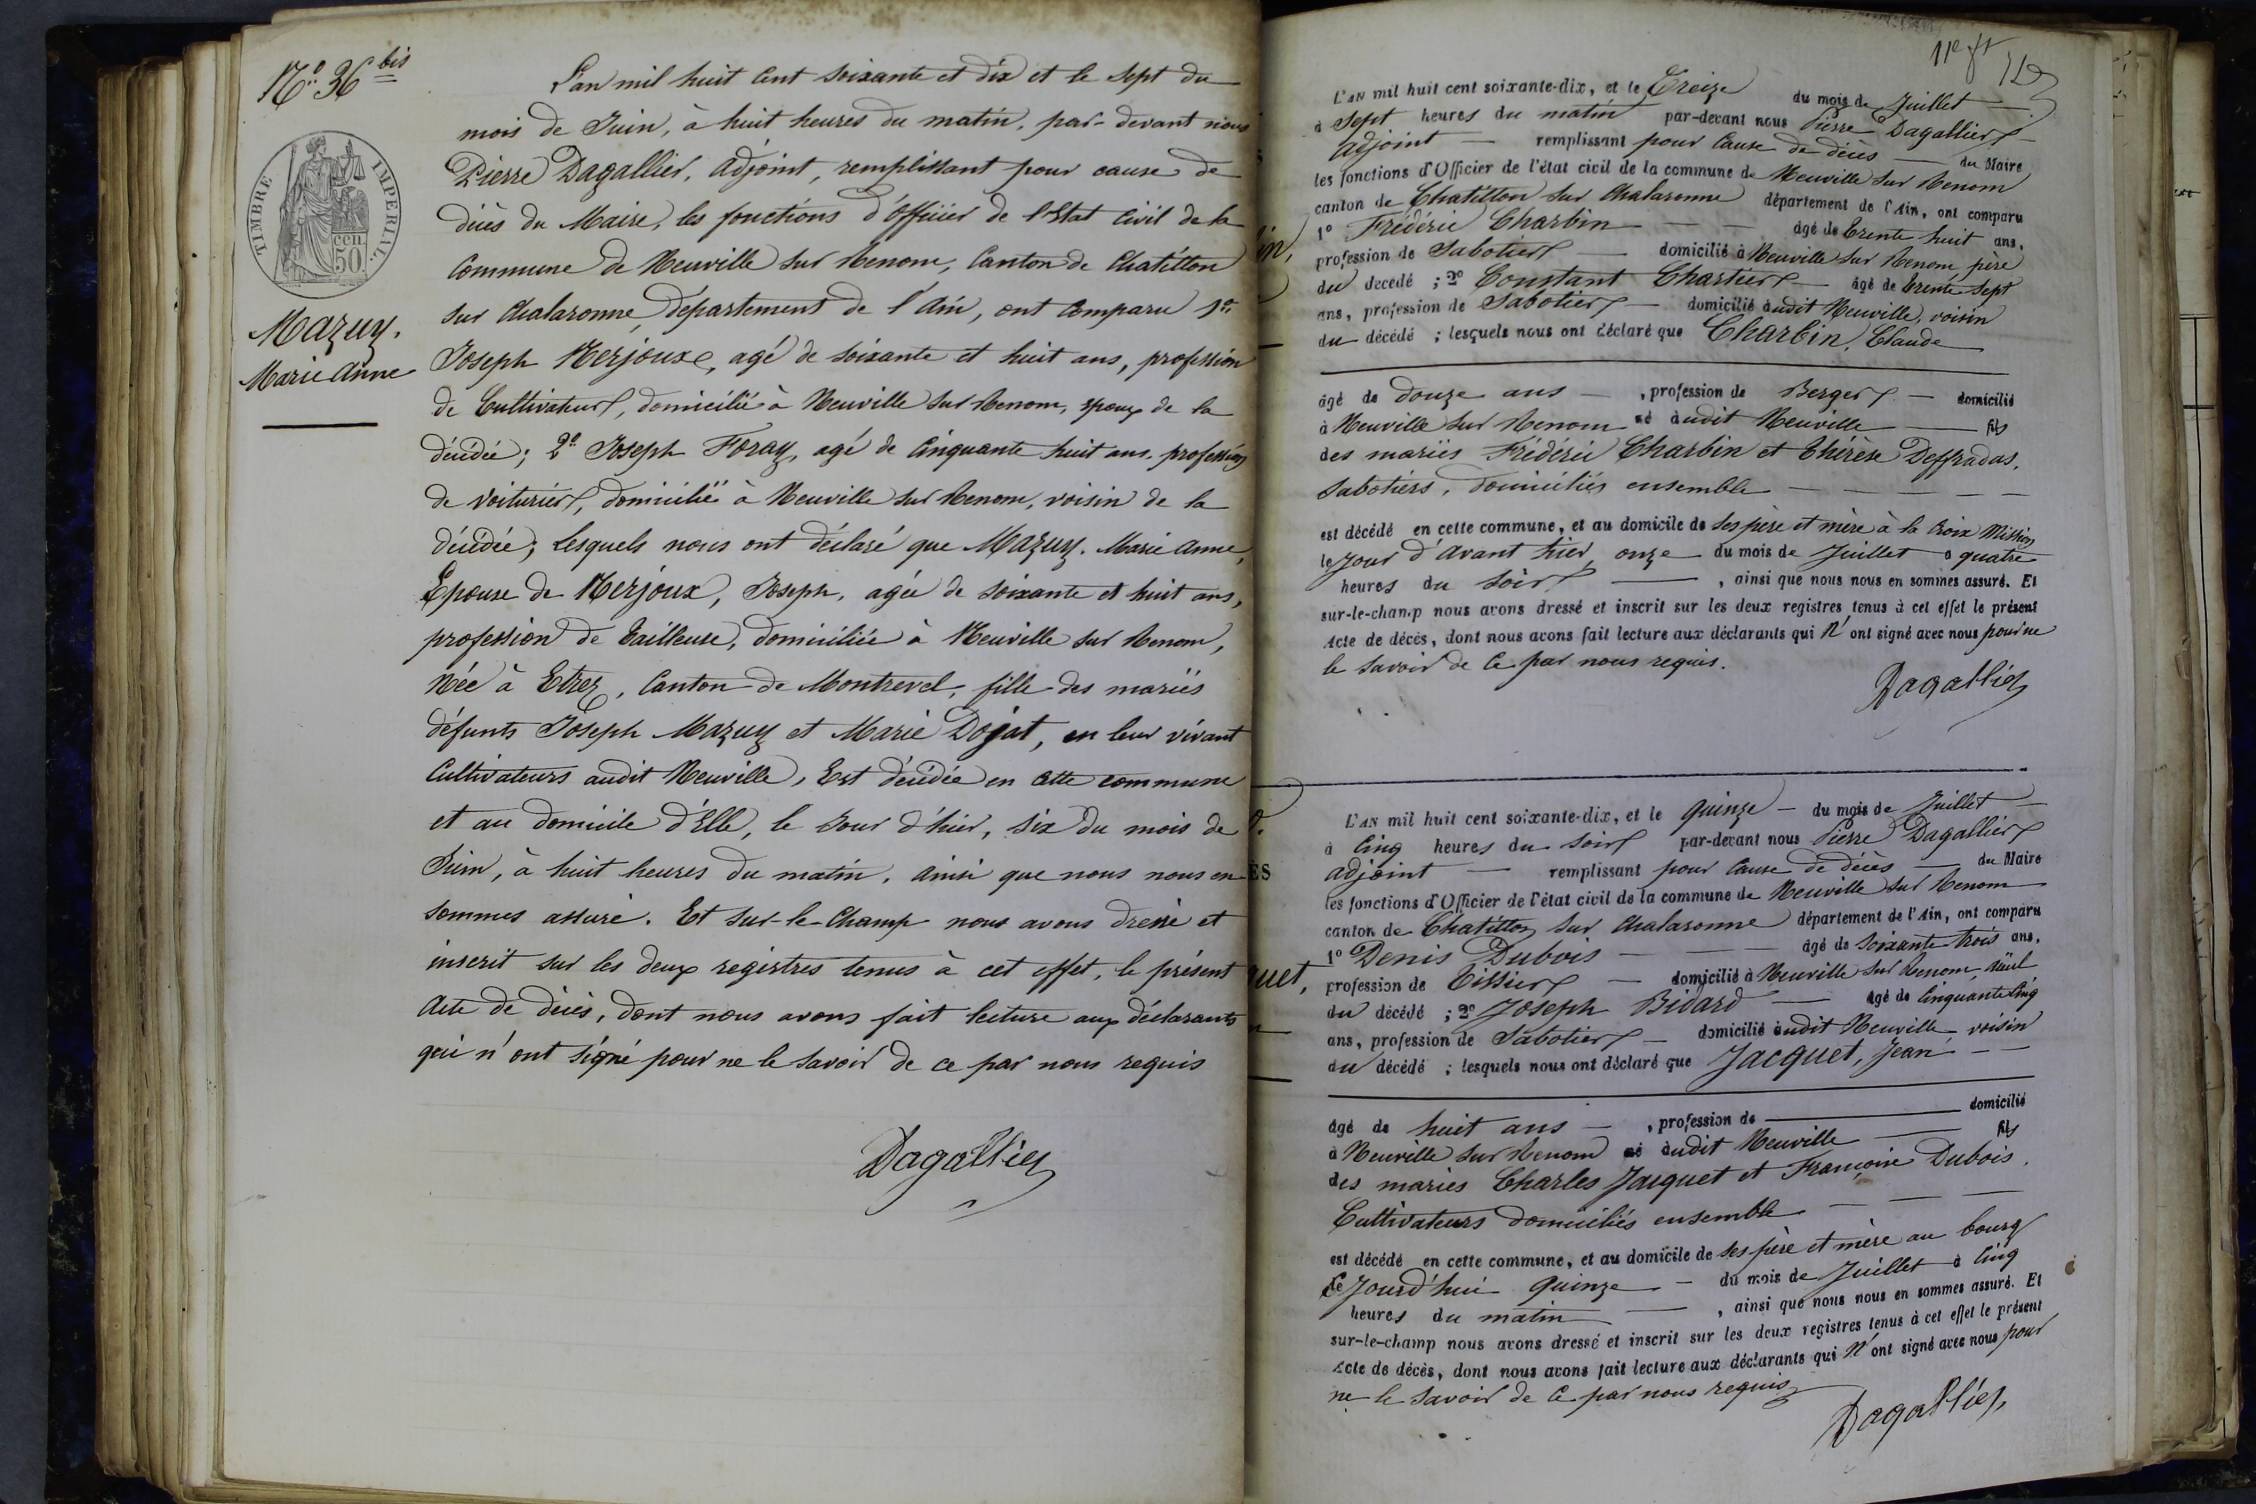 N.º 36 bis
TIMBRE IMPERIAL
50 cen
Mazuy.
Marie Anne
L'an mil huit cent soixante et dix et le sept du
mois de Juin, à huit heures du matin, par-devant nous
Pierre Dagallier, adjoint, remplissant pour cause de
décès du Maire, les fonctions d'officier de l'Etat Civil de la
Commune de Neuville sur Renom, Canton de Chatillon
sur Chalaronne, département de l'Ain, ont Comparu 1º
Joseph Merjoux, agé de soixante et huit ans, profession
de Cultivateur, domicilié à Neuville sur Renom, époux de la
décédée; 2º Joseph Foray, agé de Cinquante huit ans, profession
de Voiturier, domicilié à Neuville sur Renom, voisin de la
décédée; Lesquels nous ont déclaré que Mazuy. Marie Anne,
Epouse de Merjoux, Joseph, agée de soixante et huit ans,
profession de Tailleuse, domiciliée à Neuville sur Renom,
Née à Etrez, Canton de Montrevel, fille des mariés
défunts Joseph Mazuy et Marie Dojat, en leur vivant
Cultivateurs audit Neuville, Est décédée en cette commune
et au domicile d'Elle, le Jour d'hier, six du mois de
Juin, à huit heures du matin, ainsi que nous nous en
sommes assuré. Et sur-le-Champ nous avons dressé et
inscrit sur les deux registres tenus à cet effet, le présent
Acte de décès, dont nous avons fait lecture aux déclarants
qui n'ont signé pour ne le savoir de ce par nous requis
Dagallier
11e ft
L'AN mil huit cent soixante-dix, et le Treize du mois de Juillet
à Sept heures du matin par-devant nous Pierre Dagallier
Adjoint remplissant pour Cause de décès du Maire
les fonctions d'Officier de l'état civil de la commune de Neuville sur Renom
canton de Chatillon sur Chalaronne département de l'Ain, ont comparu
1º Frédéric Charbin âgé de trente huit ans,
profession de Sabotier domicilié à Neuville sur Renom, père
du décédé ; 2º Constant Chartier âgé de trente sept
ans, profession de Sabotier domicilié audit Neuville, voisin
du décédé ; lesquels nous ont déclaré que Charbin, Claude
âgé de douze ans , profession de Berger domicilié
à Neuville sur Renom né audit Neuville fils
des mariés Frédéric Charbin et Thérèse Deffradas,
Sabotiers, domiciliés ensemble
est décédé en cette commune, et au domicile de ses père et mère à la Croix Mission
le Jour d'avant hier, onze du mois de Juillet à quatre
heures du soir , ainsi que nous nous en sommes assuré. Et
sur-le-champ nous avons dressé et inscrit sur les deux registres tenus à cet effet le présent
Acte de décès, dont nous avons fait lecture aux déclarants qui N' ont signé avec nous pour ne
le savoir de Ce par nous requis.
Dagallier
L'AN mil huit cent soixante-dix, et le quinze du mois de Juillet
à Cinq heures du soir par-devant nous Pierre Dagallier
adjoint remplissant pour Cause de décès du Maire
les fonctions d'Officier de l'état civil de la commune de Neuville sur Renom
canton de Chatillon sur Chalaronne département de l'Ain, ont comparu
1º Denis Dubois âgé de soixante trois ans,
profession de Tissier domicilié à Neuville sur Renom, aïeul
du décédé ; 2º Joseph Bidard âgé de Cinquante Cinq
ans, profession de Sabotier domicilié audit Neuville, voisin
du décédé ; lesquels nous ont déclaré que Jacquet, Jean
âgé de huit ans , profession de domicilié
à Neuville sur Renom né audit Neuville fils
des mariés Charles Jacquet et Françoise Dubois.
Cultivateurs domiciliés ensemble
est décédé en cette commune, et au domicile de ses père et mère au bourg
Ce Jourd'hui quinze du mois de Juillet à Cinq
heures du matin , ainsi que nous nous en sommes assuré. Et
sur-le-champ nous avons dressé et inscrit sur les deux registres tenus à cet effet le présent
Acte de décès, dont nous avons fait lecture aux déclarants qui N' ont signé avec nous pour
ne le savoir de Ce par nous requis
Dagallier